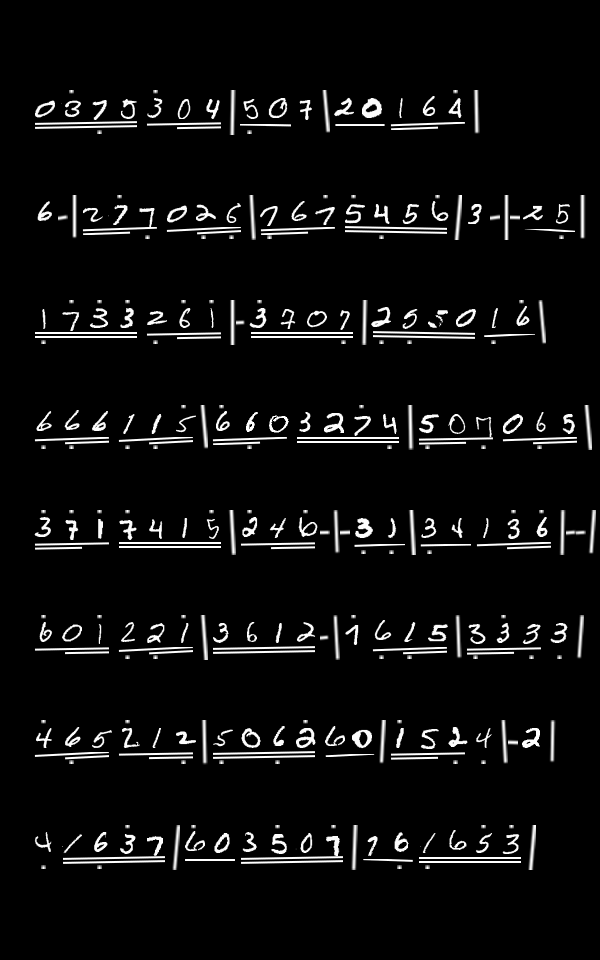 0375304|507|20164|
6-|277026|7675456|3-|-25|
1733261|-3707|255016|
666115|6603274|507065|
3717415|246-|-31|34136|--|
601221|3612-|1615|3333|
465212|506260|1524|-2|
41637|603507|161653|